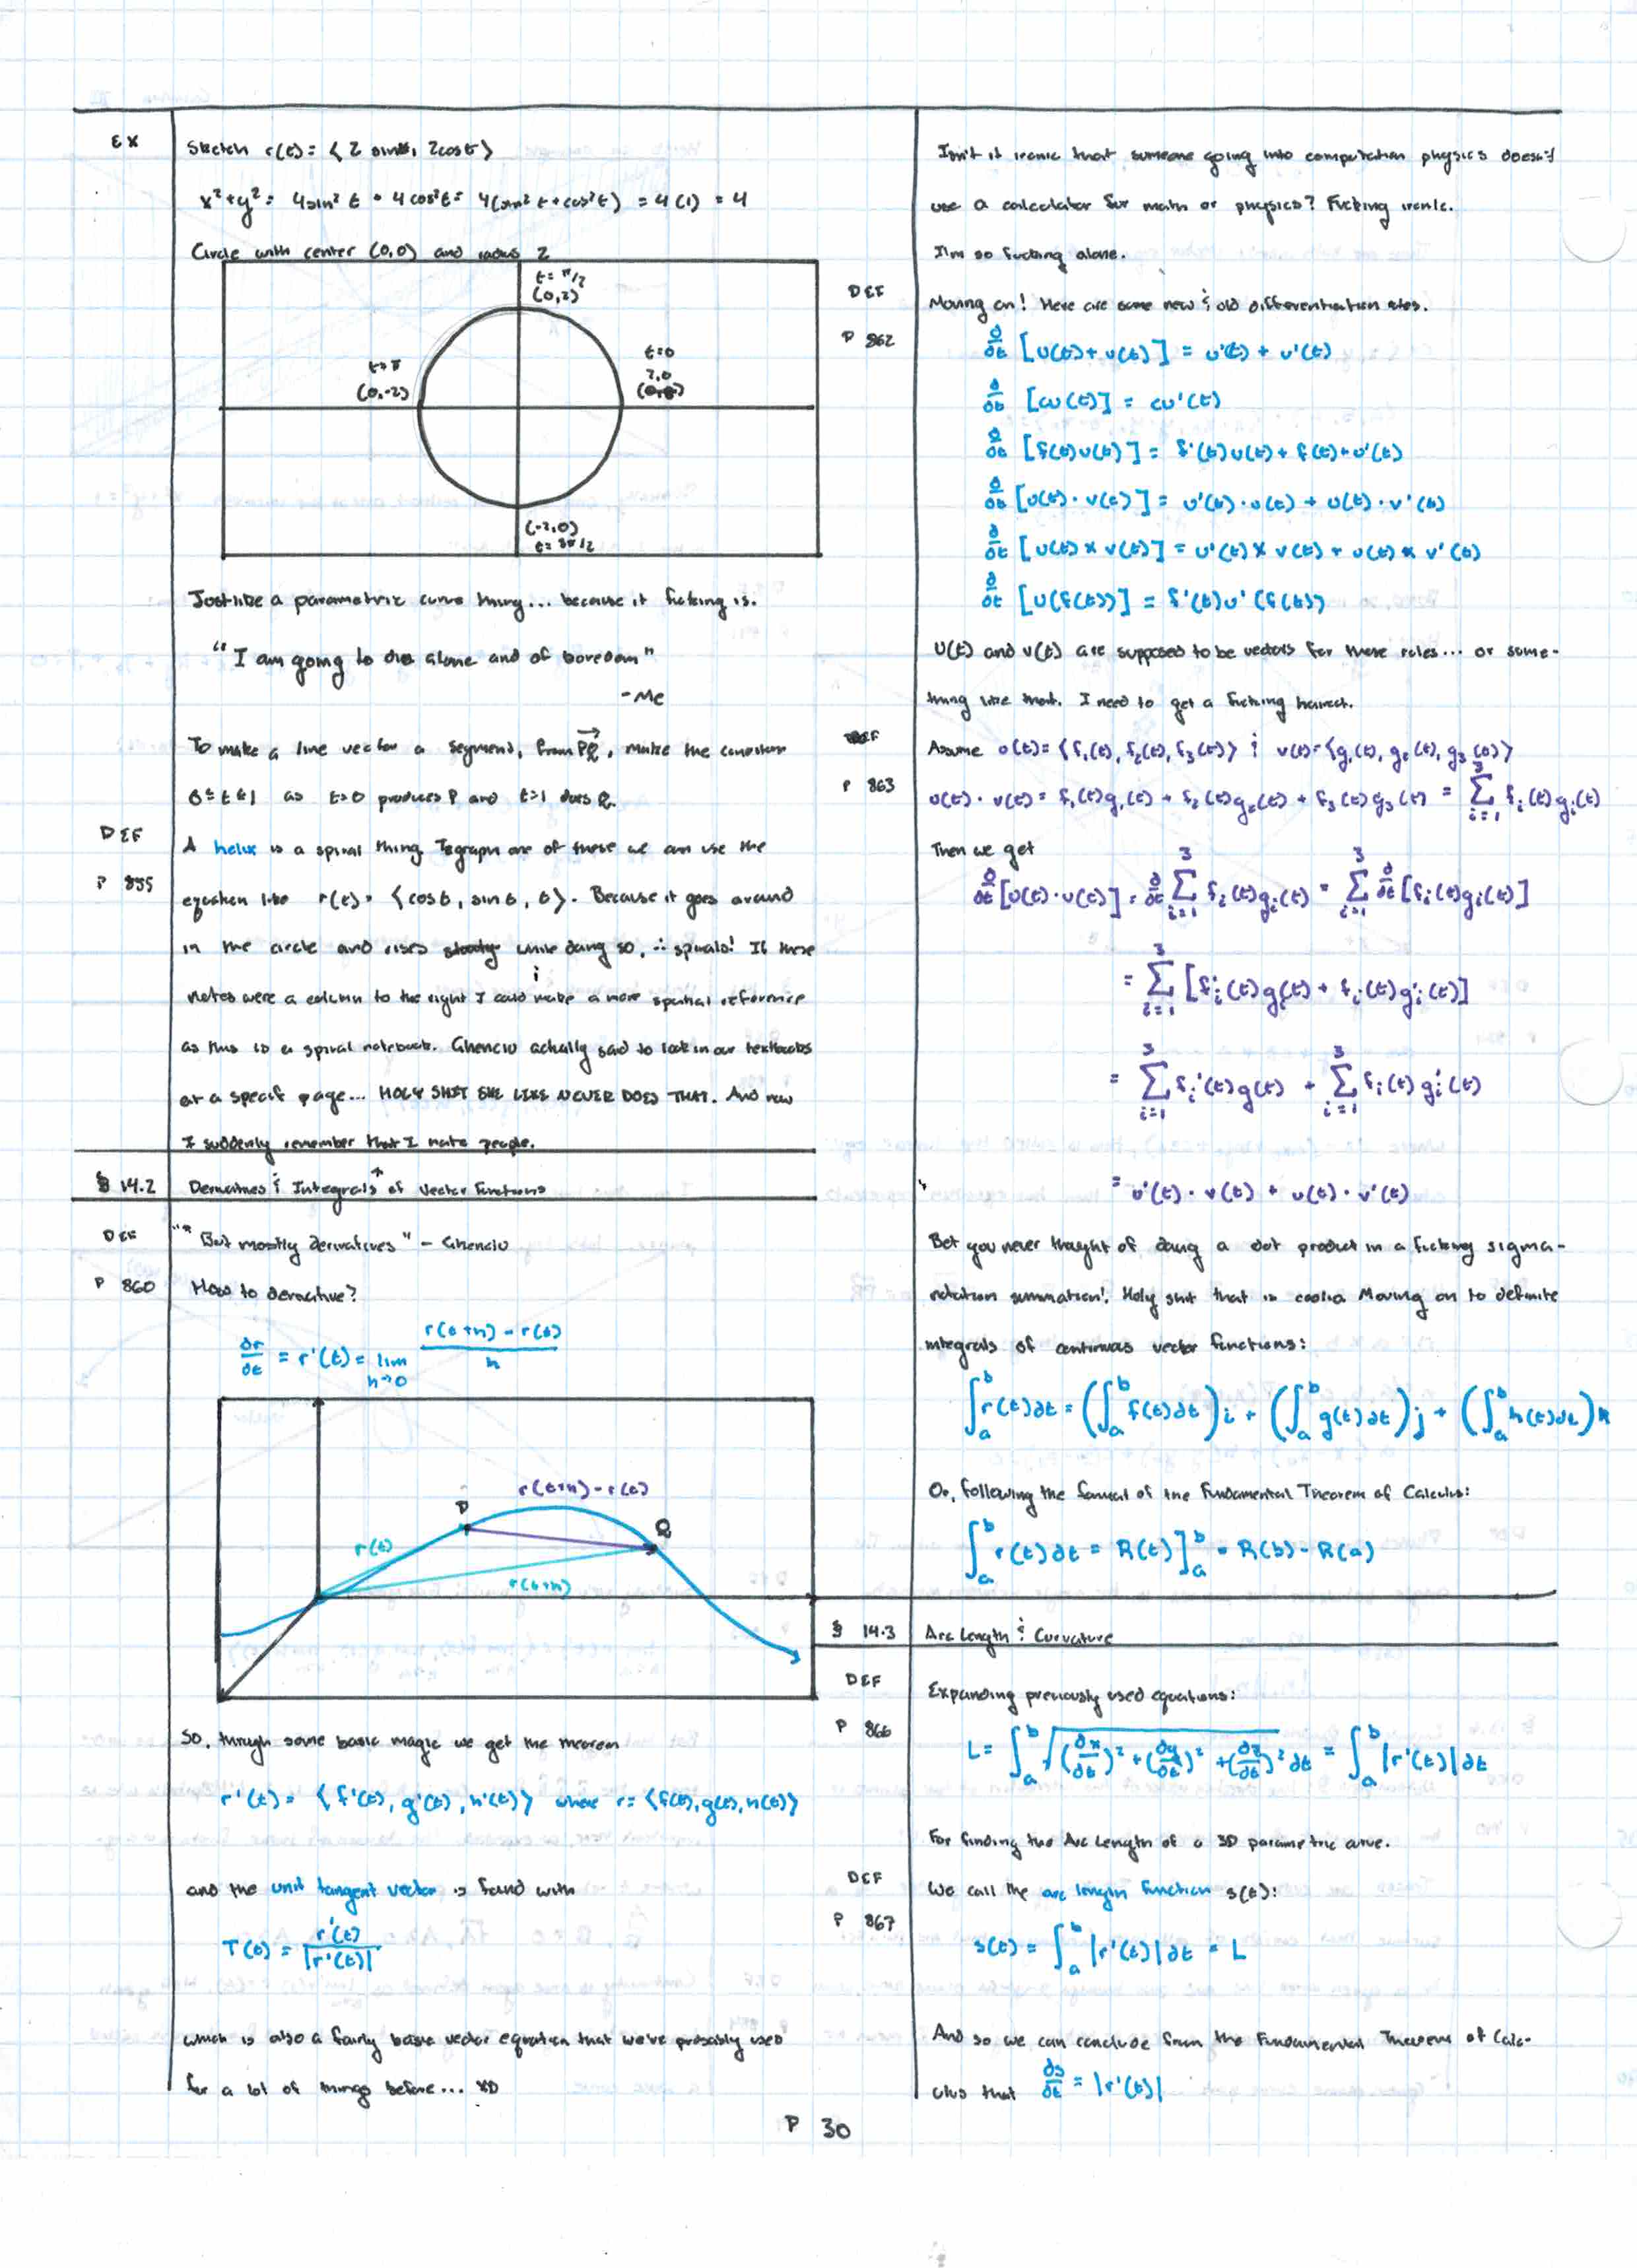 EX
Sketch r(t) = ⟨2 sint, 2cost⟩
x² + y² = 4sin² t + 4cos²t = 4(sin² t + cos²t) = 4(1) = 4
Circle with center (0,0) and radius 2
t = π/2
(0,2)
t = π
(0,-2)
t=0
2,0
(-2,0)
t = 3π/2
Just like a parametric curve thing... because it fucking is.
"I am going to die alone and of boredom"
-Me
To make a line vector a segment, from PQ, make the
0 ≤ t ≤ 1 as t=0 produces P and t=1 does Q.
DEF
P 855
A helix is a spiral thing To graph one of these we can use the
equation like r(t) = ⟨cost, sint, t⟩. Because it goes around
in the circle and rises while doing so, ∴ spirals! If these
notes were a column to the right I could make a more spatial reference
as this is a spiral notebook. Ghenciu actually said to look in our textbooks
at a specif page... HOLY SHIT SHE LIKE NEVER DOES THAT. And now
I suddenly remember that I hate people.
§ 14.2 Derivatives & Integrals* of Vector Functions
DEF
P 860
"* But mostly derivatives" - Ghenciu
How to derivative?
dr/dt = r'(t) = lim h→0 (r(t+h) - r(t))/h
r(t+h) - r(t)
P
Q
r(t)
r(t+h)
So, through some basic magic we get the theorem
r'(t) = ⟨f'(t), g'(t), h'(t)⟩ where r = ⟨f(t), g(t), h(t)⟩
and the unit tangent vector is found with
T(t) = r'(t)/|r'(t)|
which is also a fairly basic vector equation that we've probably used
for a lot of things before... XD
Isn't it ironic that someone going into computation physics doesn't
use a calculator for math or physics? Fucking ironic.
I'm so fucking alone.
DEF
P 862
Moving on! Here are some new & old differentiation rules.
d/dt [u(t) + v(t)] = u'(t) + v'(t)
d/dt [cu(t)] = cu'(t)
d/dt [f(t)u(t)] = f'(t)u(t) + f(t)·u'(t)
d/dt [u(t) · v(t)] = u'(t) · v(t) + u(t) · v'(t)
d/dt [u(t) × v(t)] = u'(t) × v(t) + u(t) × v'(t)
d/dt [u(f(t))] = f'(t)u'(f(t))
u(t) and v(t) are supposed to be vectors for these rules... or some-
thing like that. I need to get a fucking haircut.
DEF
P 863
Assume u(t) = ⟨f₁(t), f₂(t), f₃(t)⟩ & v(t) = ⟨g₁(t), g₂(t), g₃(t)⟩
u(t) · v(t) = f₁(t)g₁(t) + f₂(t)g₂(t) + f₃(t)g₃(t) = Σ³ᵢ₌₁ fᵢ(t)gᵢ(t)
Then we get
d/dt [u(t) · v(t)] = d/dt Σ³ᵢ₌₁ fᵢ(t)gᵢ(t) = Σ³ᵢ₌₁ d/dt [fᵢ(t)gᵢ(t)]
= Σ³ᵢ₌₁ [f'ᵢ(t)gᵢ(t) + fᵢ(t)g'ᵢ(t)]
= Σ³ᵢ₌₁ fᵢ'(t)g(t) + Σ³ᵢ₌₁ fᵢ(t)gᵢ'(t)
= u'(t) · v(t) + u(t) · v'(t)
Bet you never thought of doing a dot product in a fucking sigma-
notation summation! Holy shit that is cool. Moving on to definite
integrals of continuous vector functions:
∫ₐᵇ r(t)dt = (∫ₐᵇ f(t)dt)i + (∫ₐᵇ g(t)dt)j + (∫ₐᵇ h(t)dt)k
Or, following the format of the Fundamental Theorem of Calculus:
∫ₐᵇ r(t)dt = R(t)]ₐᵇ = R(b) - R(a)
§ 14.3 Arc Length & Curvature
DEF
P 866
Expanding previously used equations:
L = ∫ₐᵇ √((dx/dt)² + (dy/dt)² + (dz/dt)²) dt = ∫ₐᵇ |r'(t)|dt
For finding the Arc Length of a 3D parametric curve.
DEF
P 867
We call the arc length function s(t):
s(t) = ∫ₐᵇ |r'(t)|dt = L
And so we can conclude from the Fundamental Theorem of Calc-
ulus that ds/dt = |r'(t)|
P 30